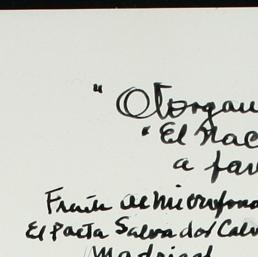 "Otorgan
"El Nac
a fav
Frente al microfono
El Poeta Salvador Calv
Madrigal